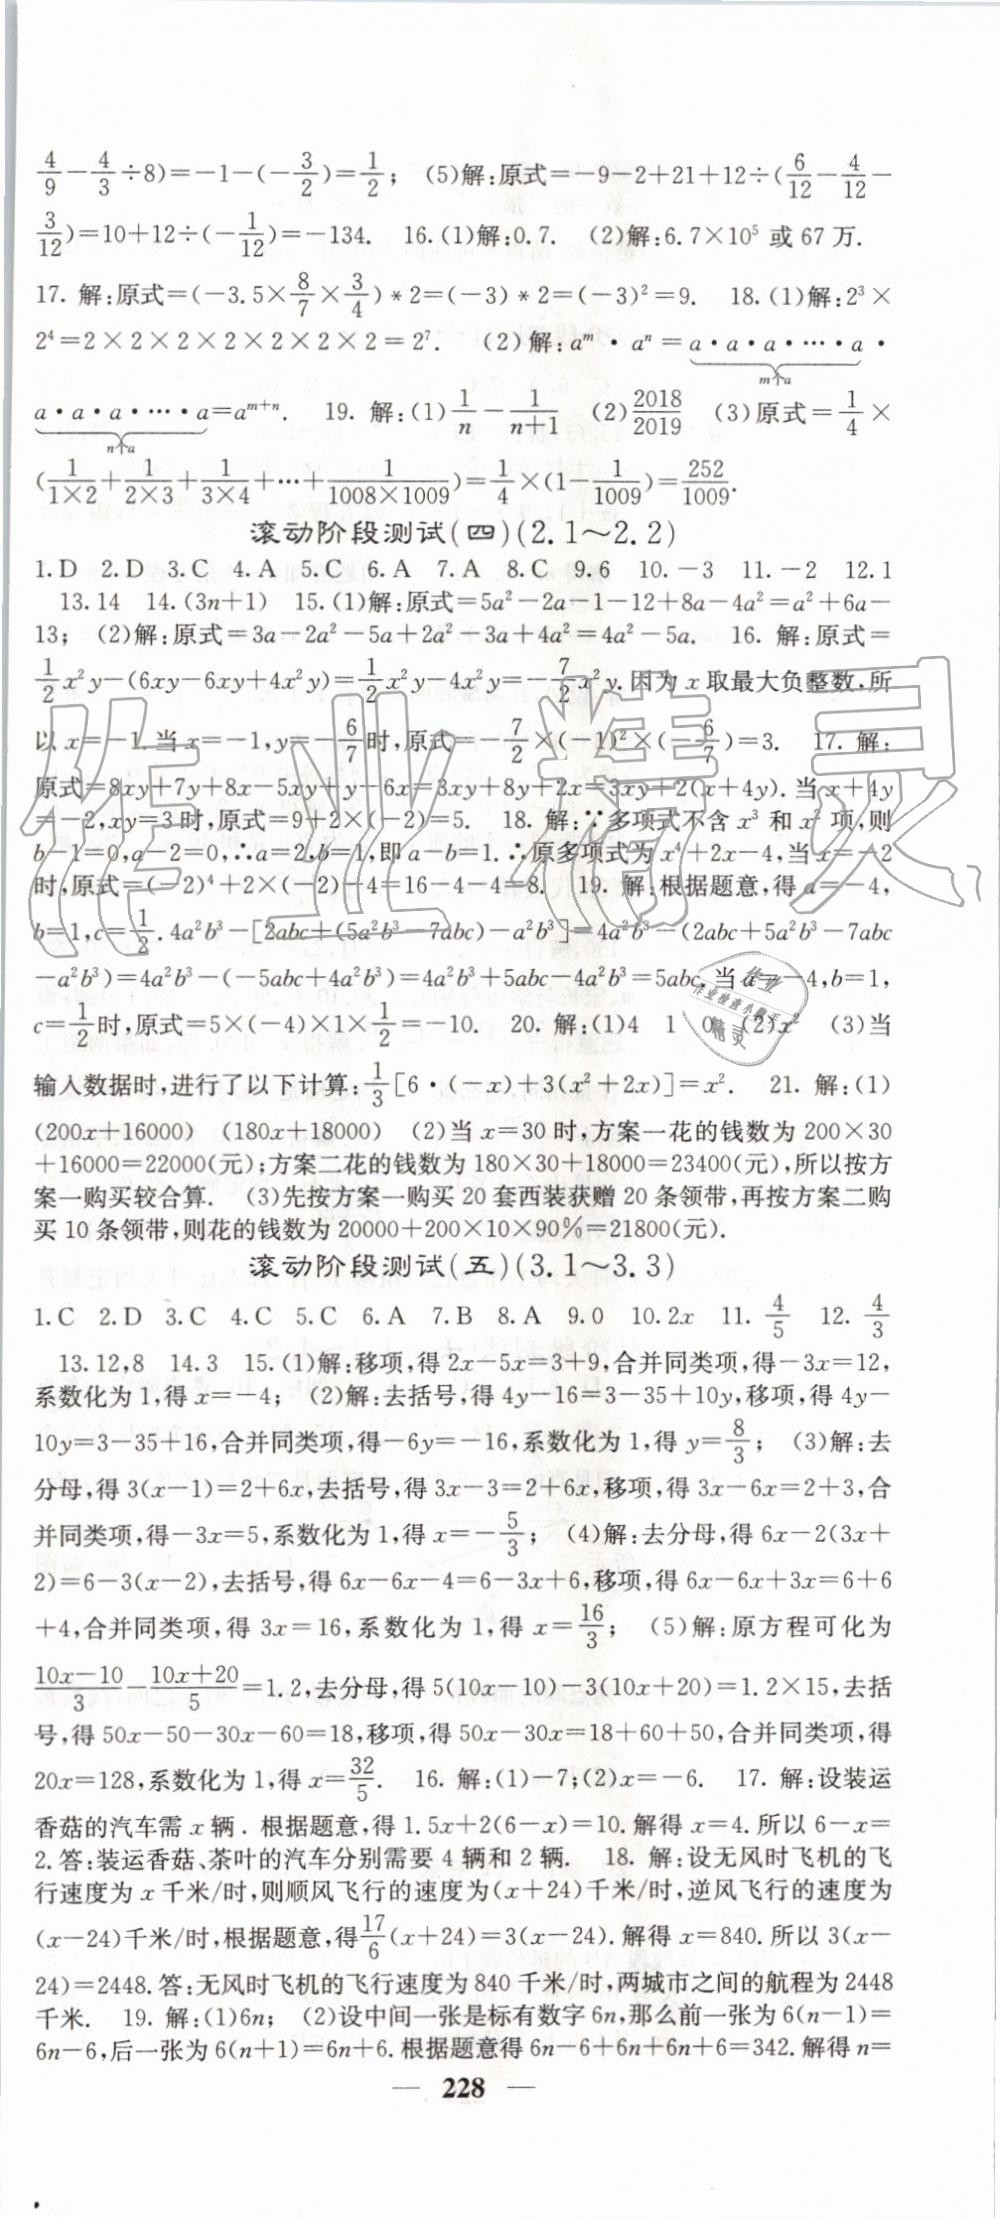 4/9－4/3÷8)＝－1－(－3/2)＝1/2； (5)解:原式＝－9－2＋21＋12÷(6/12－4/12－
3/12)＝10＋12÷(－1/12)＝－134. 16.(1)解:0.7. (2)解:6.7×10⁵ 或 67 万.
17. 解:原式＝(－3.5×8/7×3/4)＊2＝(－3)＊2＝(－3)²＝9. 18.(1)解:2³×
2⁴＝2×2×2×2×2×2×2＝2⁷. (2)解:aᵐ·aⁿ＝a·a·a·…·a·
m个a
a·a·a·…·a＝aᵐ⁺ⁿ. 19. 解:(1)1/n－1/(n+1) (2)2018/2019 (3)原式＝1/4×
n个a
(1/(1×2)＋1/(2×3)＋1/(3×4)＋…＋1/(1008×1009))＝1/4×(1－1/1009)＝252/1009.
滚动阶段测试(四)(2.1～2.2)
1.D 2.D 3.C 4.A 5.C 6.A 7.A 8.C 9.6 10.－3 11.－2 12.1
13.14 14.(3n＋1) 15.(1)解:原式＝5a²－2a－1－12＋8a－4a²＝a²＋6a－
13； (2)解:原式＝3a－2a²－5a＋2a²－3a＋4a²＝4a²－5a. 16. 解:原式＝
1/2x²y－(6xy－6xy＋4x²y)＝1/2x²y－4x²y＝－7/2x²y.因为 x 取最大负整数,所
以 x＝－1.当 x＝－1,y＝－6/7时,原式＝－7/2×(－1)²×(－6/7)＝3. 17. 解:
原式＝8xy＋7y＋8x－5xy＋y－6x＝3xy＋8y＋2x＝3xy＋2(x＋4y).当 x＋4y
＝－2,xy＝3时,原式＝9＋2×(－2)＝5. 18. 解:∵多项式不含 x³ 和 x² 项,则
b－1＝0,a－2＝0,∴a＝2,b＝1,即 a－b＝1.∴原多项式为 x⁴＋2x－4,当 x＝－2
时,原式＝(－2)⁴＋2×(－2)－4＝16－4－4＝8. 19. 解:根据题意,得 a＝－4,
b＝1,c＝1/2.4a²b³－[2abc＋(5a²b³－7abc)－a²b³]＝4a²b³－(2abc＋5a²b³－7abc
－a²b³)＝4a²b³－(－5abc＋4a²b³)＝4a²b³＋5abc－4a²b³＝5abc,当 a＝－4,b＝1,
c＝1/2时,原式＝5×(－4)×1×1/2＝－10. 20. 解:(1)4 1 0 (2)x² (3)当
输入数据时,进行了以下计算:1/3[6·(－x)＋3(x²＋2x)]＝x². 21. 解:(1)
(200x＋16000) (180x＋18000) (2)当 x＝30 时,方案一花的钱数为 200×30
＋16000＝22000(元);方案二花的钱数为 180×30＋18000＝23400(元),所以按方
案一购买较合算. (3)先按方案一购买 20 套西装获赠 20 条领带,再按方案二购
买 10 条领带,则花的钱数为 20000＋200×10×90%＝21800(元).
滚动阶段测试(五)(3.1～3.3)
1.C 2.D 3.C 4.C 5.C 6.A 7.B 8.A 9.0 10.2x 11.4/5 12.4/3
13.12,8 14.3 15.(1)解:移项,得 2x－5x＝3＋9,合并同类项,得－3x＝12,
系数化为 1,得 x＝－4； (2)解:去括号,得 4y－16＝3－35＋10y,移项,得 4y－
10y＝3－35＋16,合并同类项,得－6y＝－16,系数化为 1,得 y＝8/3； (3)解:去
分母,得 3(x－1)＝2＋6x,去括号,得 3x－3＝2＋6x,移项,得 3x－6x＝2＋3,合
并同类项,得－3x＝5,系数化为 1,得 x＝－5/3； (4)解:去分母,得 6x－2(3x＋
2)＝6－3(x－2),去括号,得 6x－6x－4＝6－3x＋6,移项,得 6x－6x＋3x＝6＋6
＋4,合并同类项,得 3x＝16,系数化为 1,得 x＝16/3； (5)解:原方程可化为
(10x－10)/3－(10x＋20)/5＝1.2,去分母,得 5(10x－10)－3(10x＋20)＝1.2×15,去括
号,得 50x－50－30x－60＝18,移项,得 50x－30x＝18＋60＋50,合并同类项,得
20x＝128,系数化为 1,得 x＝32/5. 16. 解:(1)－7;(2)x＝－6. 17. 解:设装运
香菇的汽车需 x 辆. 根据题意,得 1.5x＋2(6－x)＝10.解得 x＝4.所以 6－x＝
2.答:装运香菇、茶叶的汽车分别需要 4 辆和 2 辆. 18. 解:设无风时飞机的飞
行速度为 x 千米/时,则顺风飞行的速度为(x＋24)千米/时,逆风飞行的速度为
(x－24)千米/时,根据题意,得17/6(x＋24)＝3(x－24).解得 x＝840.所以 3(x－
24)＝2448.答:无风时飞机的飞行速度为 840 千米/时,两城市之间的航程为 2448
千米. 19. 解:(1)6n； (2)设中间一张是标有数字 6n,那么前一张为 6(n－1)＝
6n－6,后一张为 6(n＋1)＝6n＋6.根据题意得 6n－6＋6n＋6n＋6＝342.解得 n＝
— 228 —
作业精灵
作业
作业检查小能手
精灵